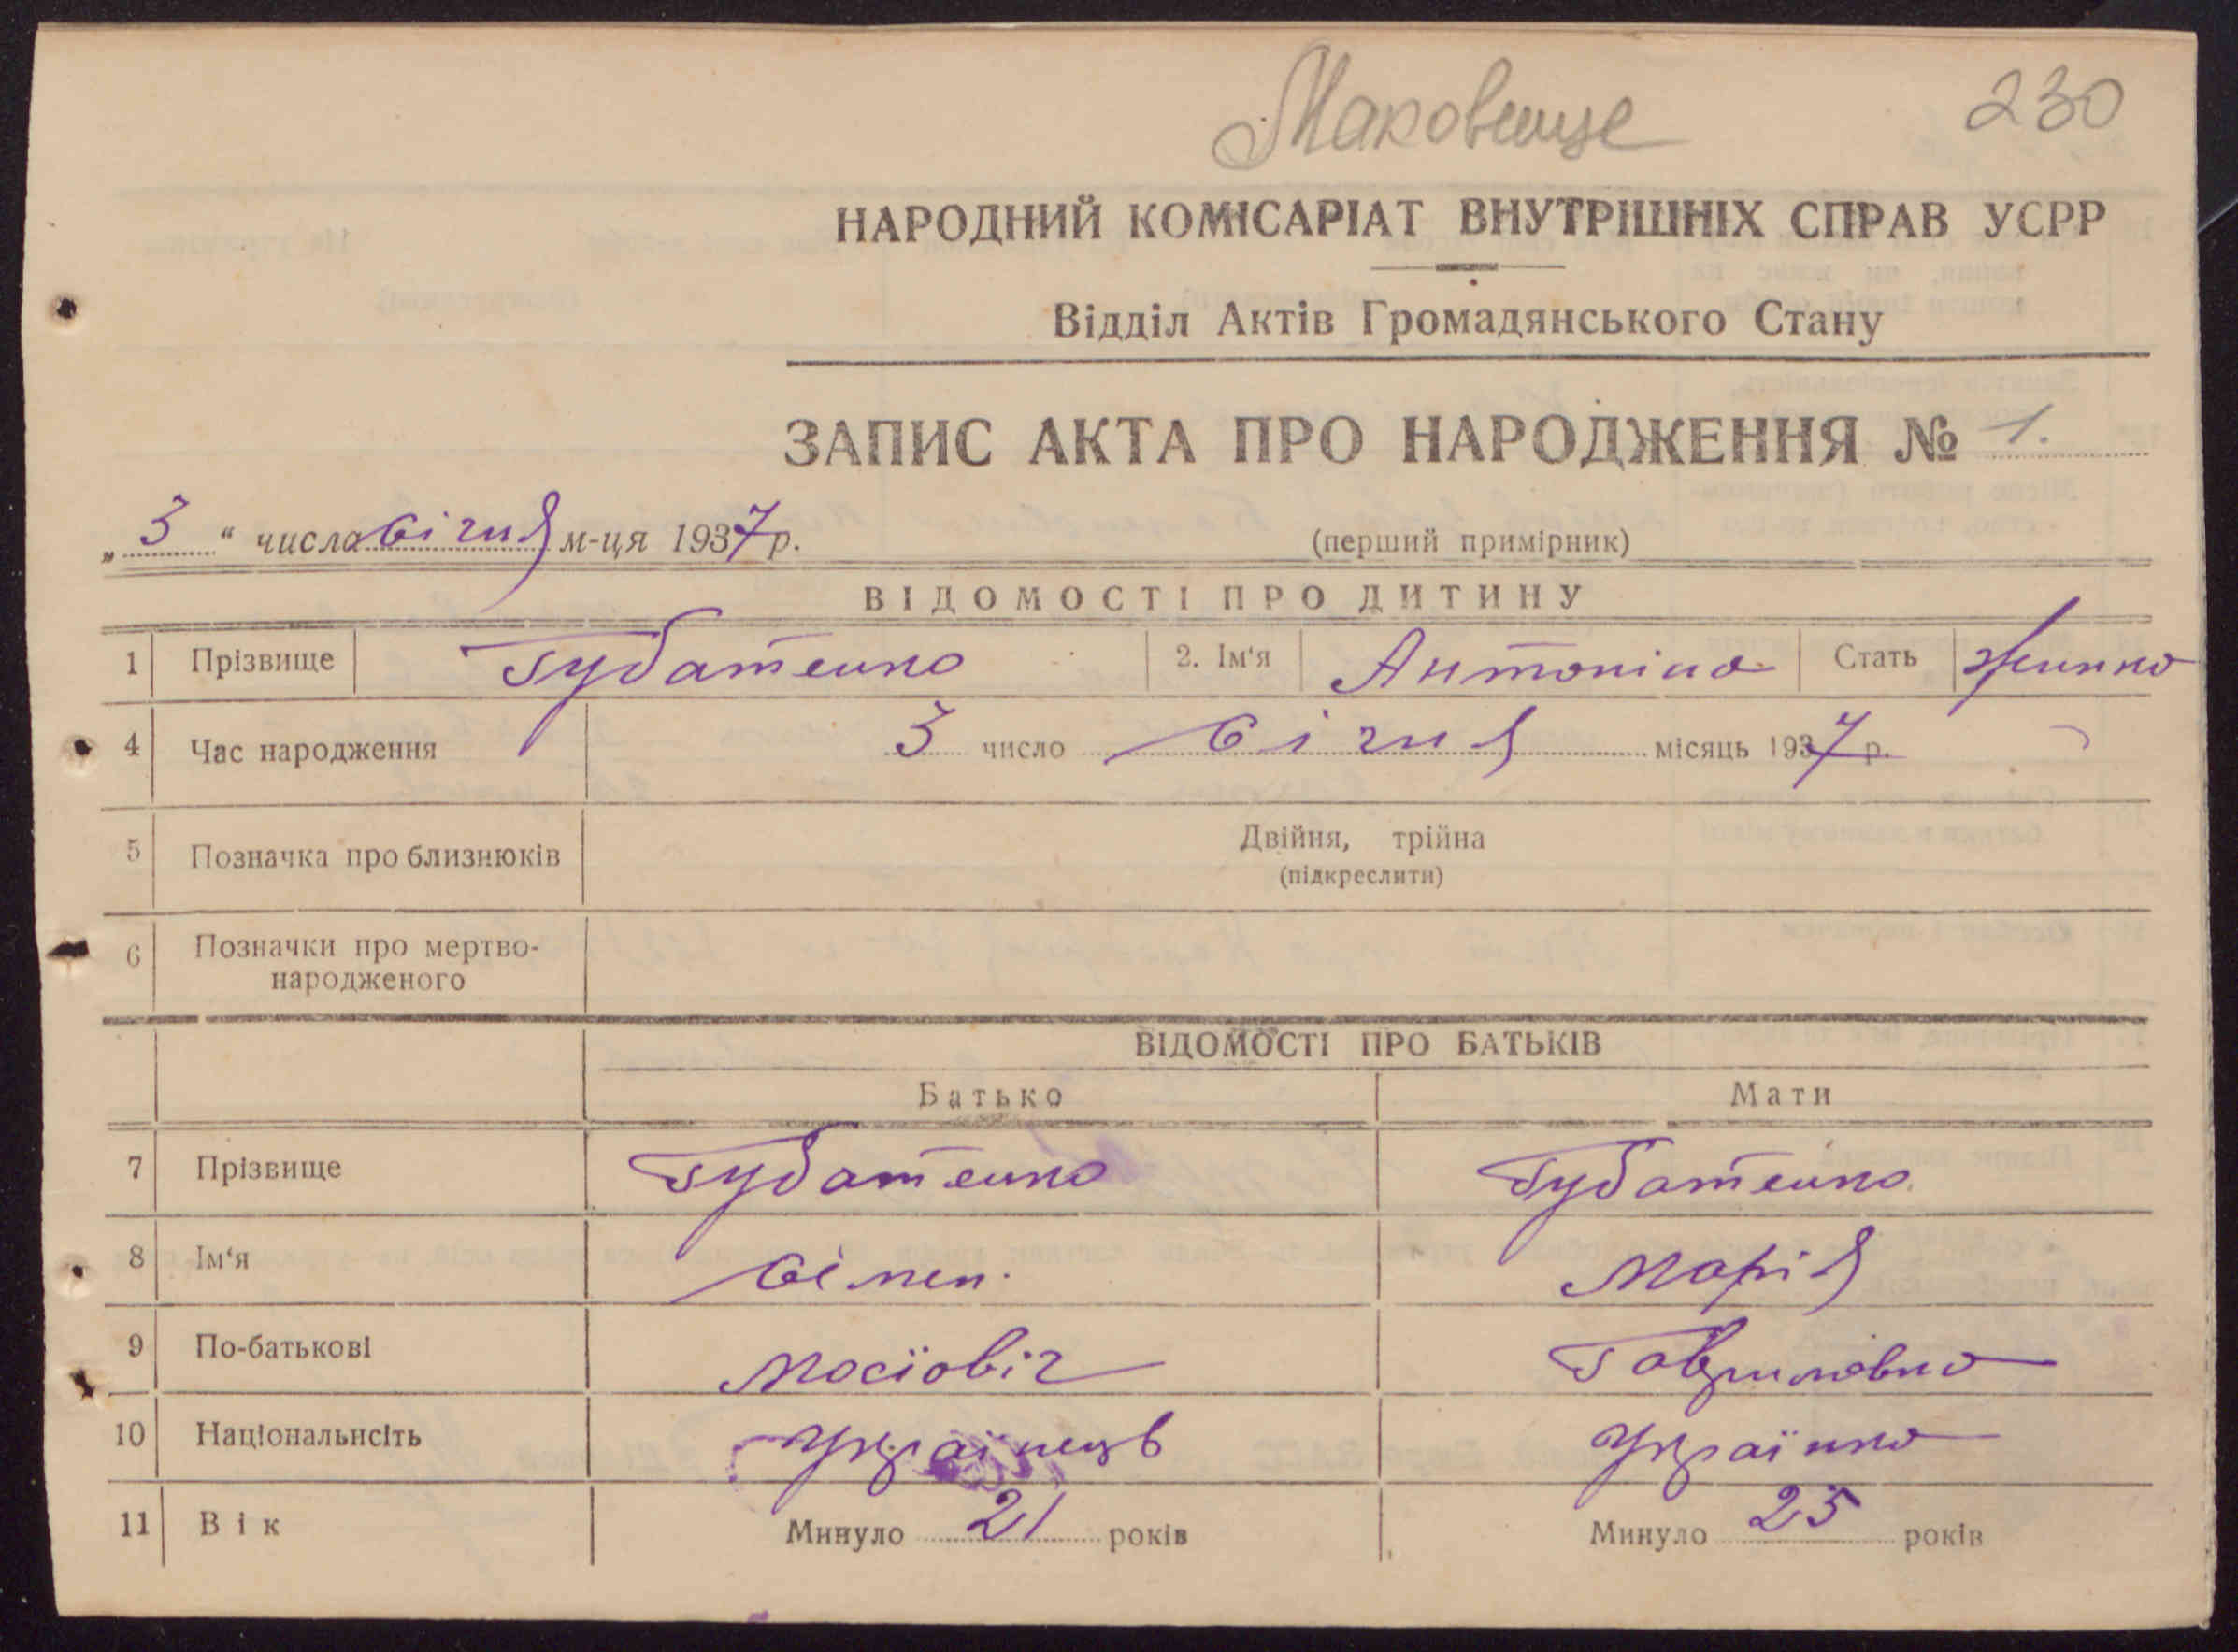 Маковище 230
НАРОДНИЙ КОМІСАРІАТ ВНУТРІШНІХ СПРАВ УСРР
Відділ Актів Громадянського Стану
ЗАПИС АКТА ПРО НАРОДЖЕННЯ № 1.
„3“ числа січня м-ця 1937 р. (перший примірник)
ВІДОМОСТІ ПРО ДИТИНУ
1 Прізвище Губатенко 2. Ім'я Антоніна Стать жинка
4 Час народження 3 число січня місяць 1937 р.
5 Позначка про близнюків Двійня, трійна
(підкреслити)
6 Позначки про мертво-
народженого
ВІДОМОСТІ ПРО БАТЬКІВ
Батько Мати
7 Прізвище Губатенко Губатенко
8 Ім'я Сімен. Марія
9 По-батькові Мосіовіч Гавриловна
10 Національнсіть Українець Українка
11 Вік Минуло 21 років Минуло 25 років